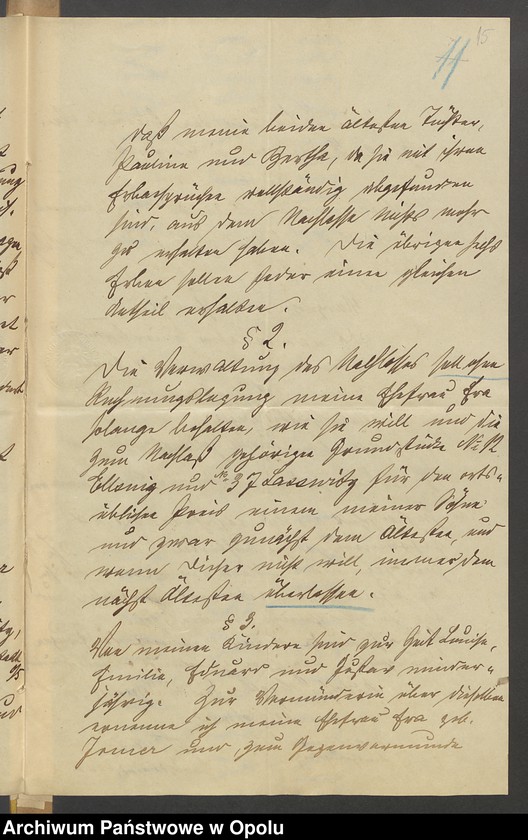 15
11
daß meine beiden ältesten Töchter,
Pauline und Bertha, da sie mit ihren
Erbansprüchen vollständig abgefunden
sind, aus dem Nachlasse nichts mehr
zu erhalten haben. Die übrigen sechs
Erben sollen jeder einen gleichen
Antheil erhalten.
§ 2.
Die Verwaltung des Nachlasses soll ohne
Rechnungslegung meine Ehefrau Eva
solange behalten, wie sie will und die
zum Nachlaß gehörigen Grundstücke No 12
und No 37 Lasswitz für den orts-
üblichen Preis einem meiner Söhne
und zwar zunächst dem Ältesten, und
wenn dieser nicht will, immer dem
nächst Ältesten überlassen.
§ 3.
Von meinen Kindern sind zur Zeit Louise,
Emilie, Eduard und Gustav minder-
jährig. Zur Vormünderin über dieselben
ernenne ich meine Ehefrau Eva geb.
und zum Gegenvormunde
Archiwum Państwowe w Opolu